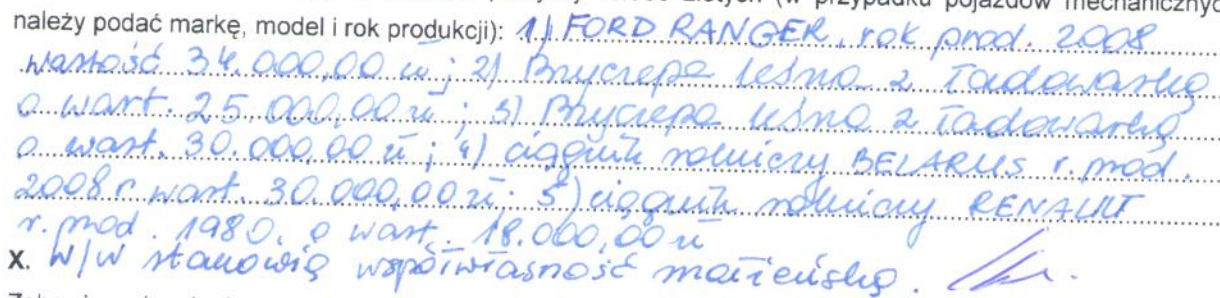 należy podać markę, model i rok produkcji): 1) FORD RANGER, rok prod. 2008
wartość 34.000,00 zł; 2) Przyczepa leśna z ładowarką
o wart. 25.000,00 zł; 3) Przyczepa leśna z ładowarką
o wart. 30.000,00 zł; 4) ciągnik rolniczy BELARUS r. prod.
2008 r. wart. 30.000,00 zł; 5) ciągnik rolniczy RENAULT
r. prod. 1980, o wart. 18.000,00 zł
X. W/W stanowią współwłasność małżeńską.